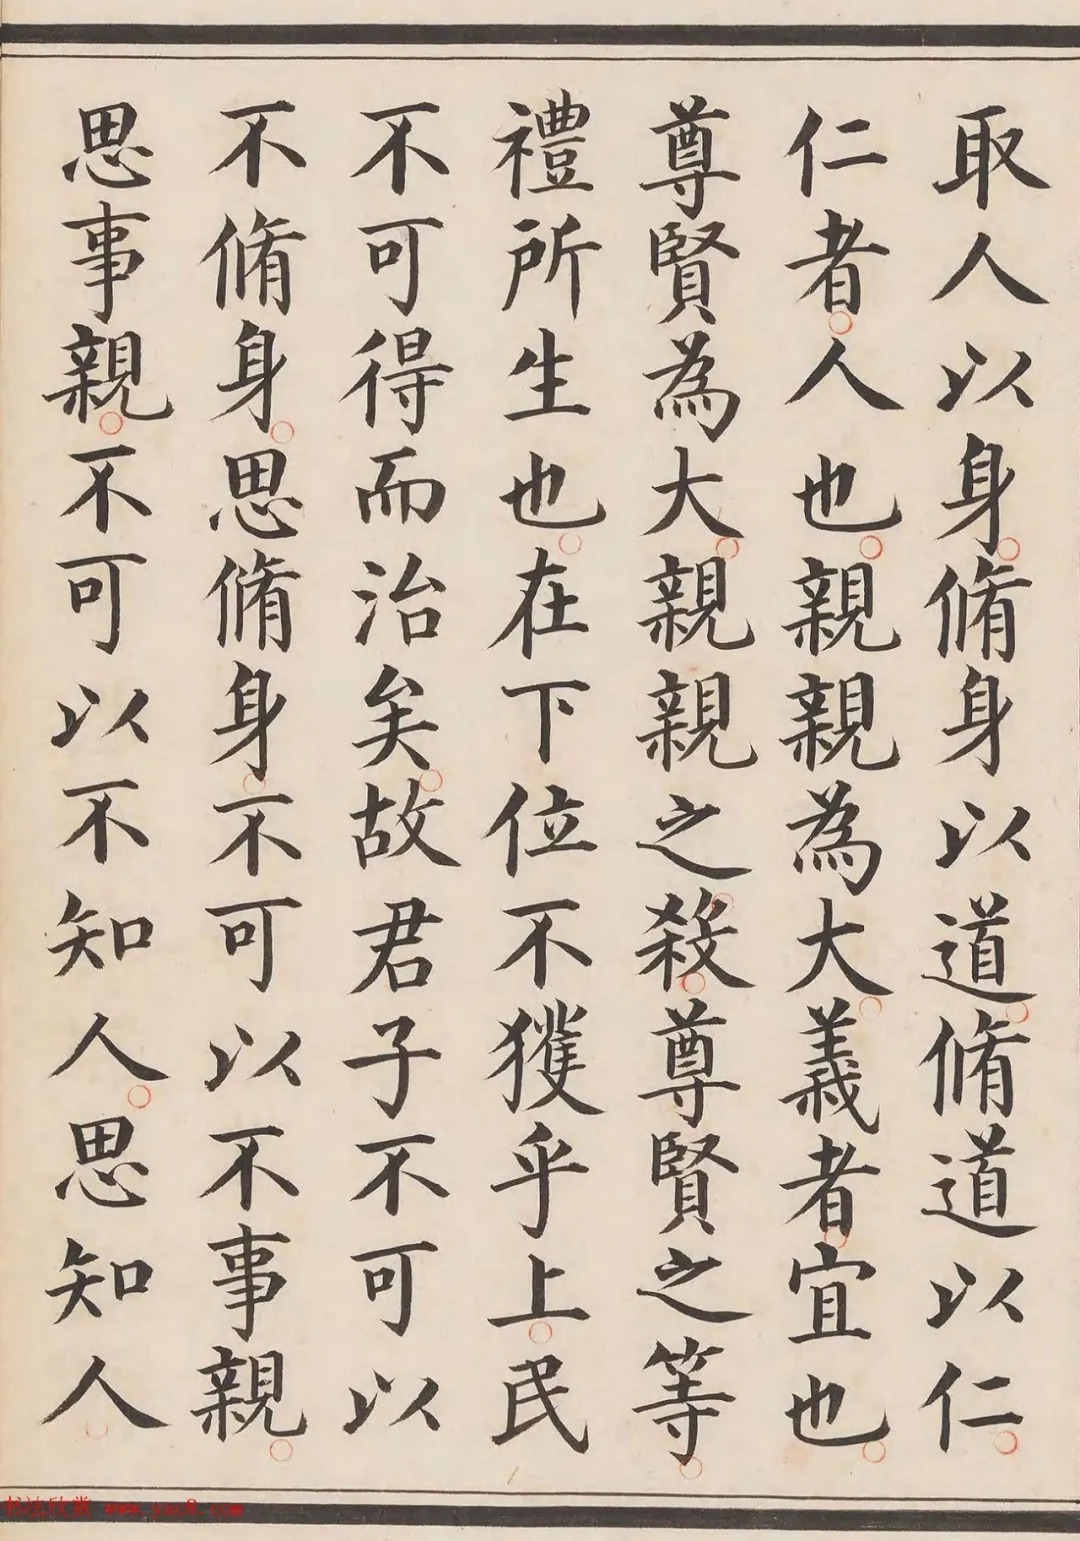 取人以身脩身以道脩道以仁
仁者人也親親為大義者宜也
尊賢為大親親之殺尊賢之等
禮所生也在下位不獲乎上民
不可得而治矣故君子不可以
不脩身思脩身不可以不事親
思事親不可以不知人思知人
书法欣赏 www.yac8.com